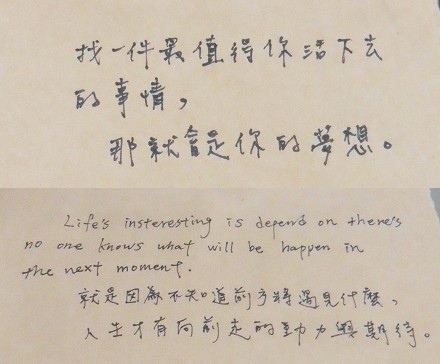 找一件最值得你活下去
的事情，
那就會是你的夢想。
Life's insteresting is depend on there's
no one knows what will be happen in
the next moment.
就是因為不知道前方將遇見什麼，
人生才有向前走的動力與期待。